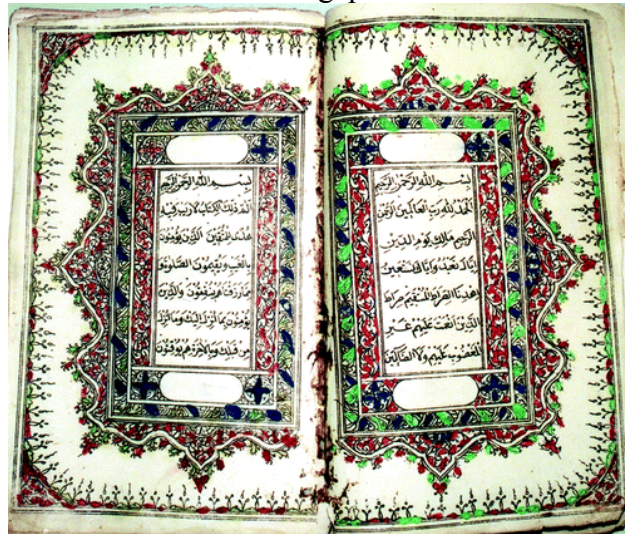 بِسْمِ اللهِ الرَّحْمٰنِ الرَّحِيْمِ
اَلْحَمْدُ لِلّٰهِ رَبِّ الْعَالَمِيْنَ الرَّحْمٰنِ
الرَّحِيْمِ مَالِكِ يَوْمِ الدِّيْنِ
اِيَّاكَ نَعْبُدُ وَاِيَّاكَ نَسْتَعِيْنُ
اِهْدِنَا الصِّرَاطَ الْمُسْتَقِيْمَ صِرَاطَ
الَّذِيْنَ اَنْعَمْتَ عَلَيْهِمْ غَيْرِ
الْمَغْضُوْبِ عَلَيْهِمْ وَلَا الضَّالِّيْنَ
بِسْمِ اللهِ الرَّحْمٰنِ الرَّحِيْمِ
الٓمّٓ ذٰلِكَ الْكِتَابُ لَا رَيْبَ فِيْهِ
هُدًى لِلْمُتَّقِيْنَ الَّذِيْنَ يُؤْمِنُوْنَ
بِالْغَيْبِ وَيُقِيْمُوْنَ الصَّلٰوةَ وَ
مِمَّا رَزَقْنَاهُمْ يُنْفِقُوْنَ وَالَّذِيْنَ
يُؤْمِنُوْنَ بِمَا اُنْزِلَ اِلَيْكَ وَمَا اُنْزِلَ
مِنْ قَبْلِكَ وَبِالْاٰخِرَةِ هُمْ يُوْقِنُوْنَ